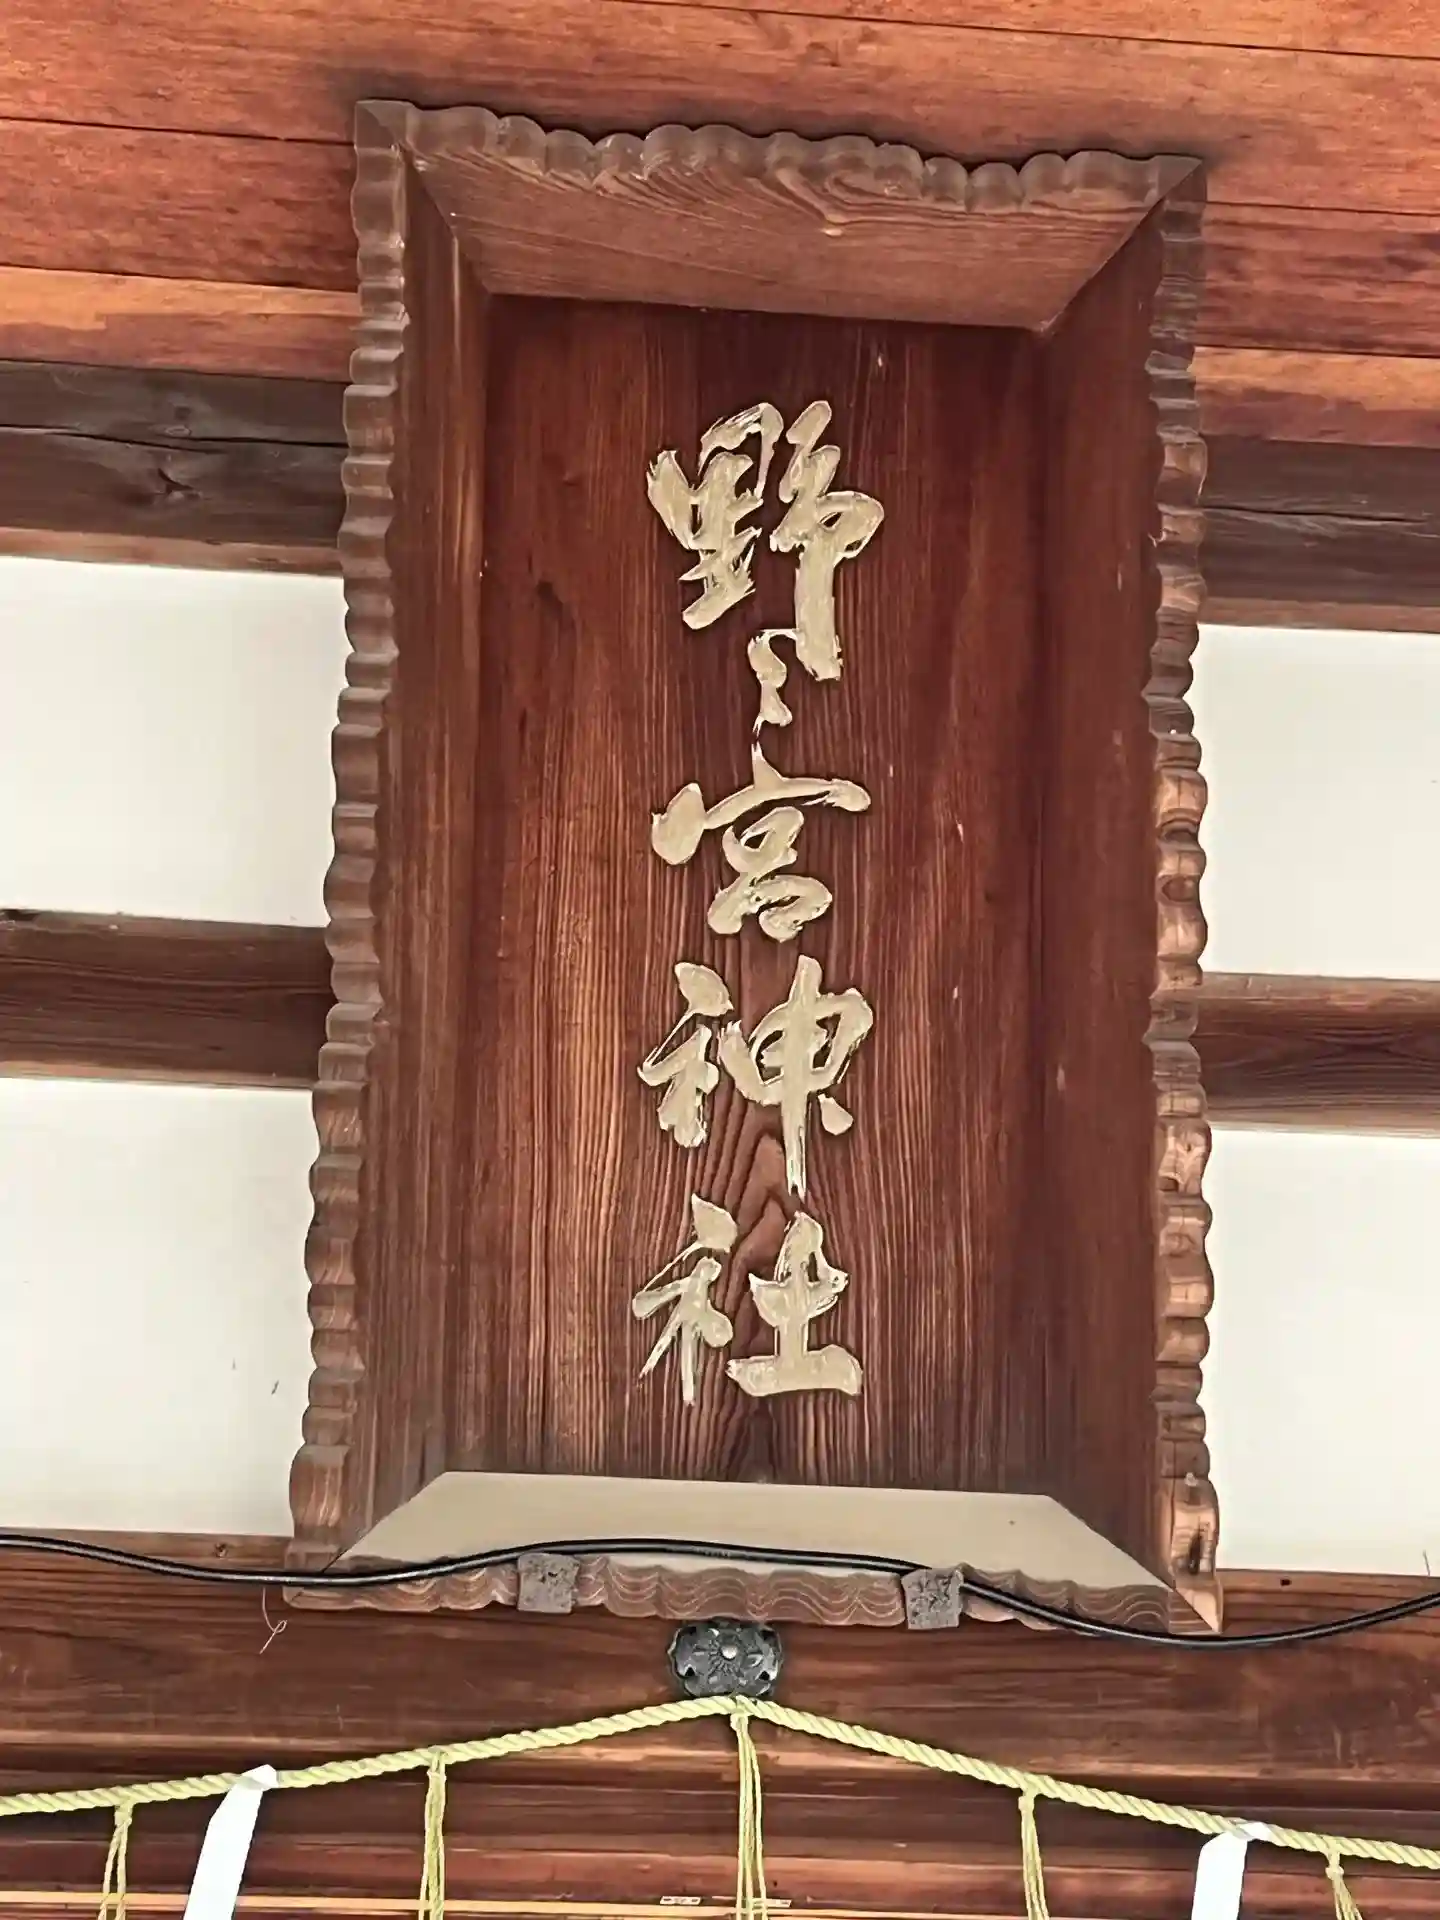 野々宮神社